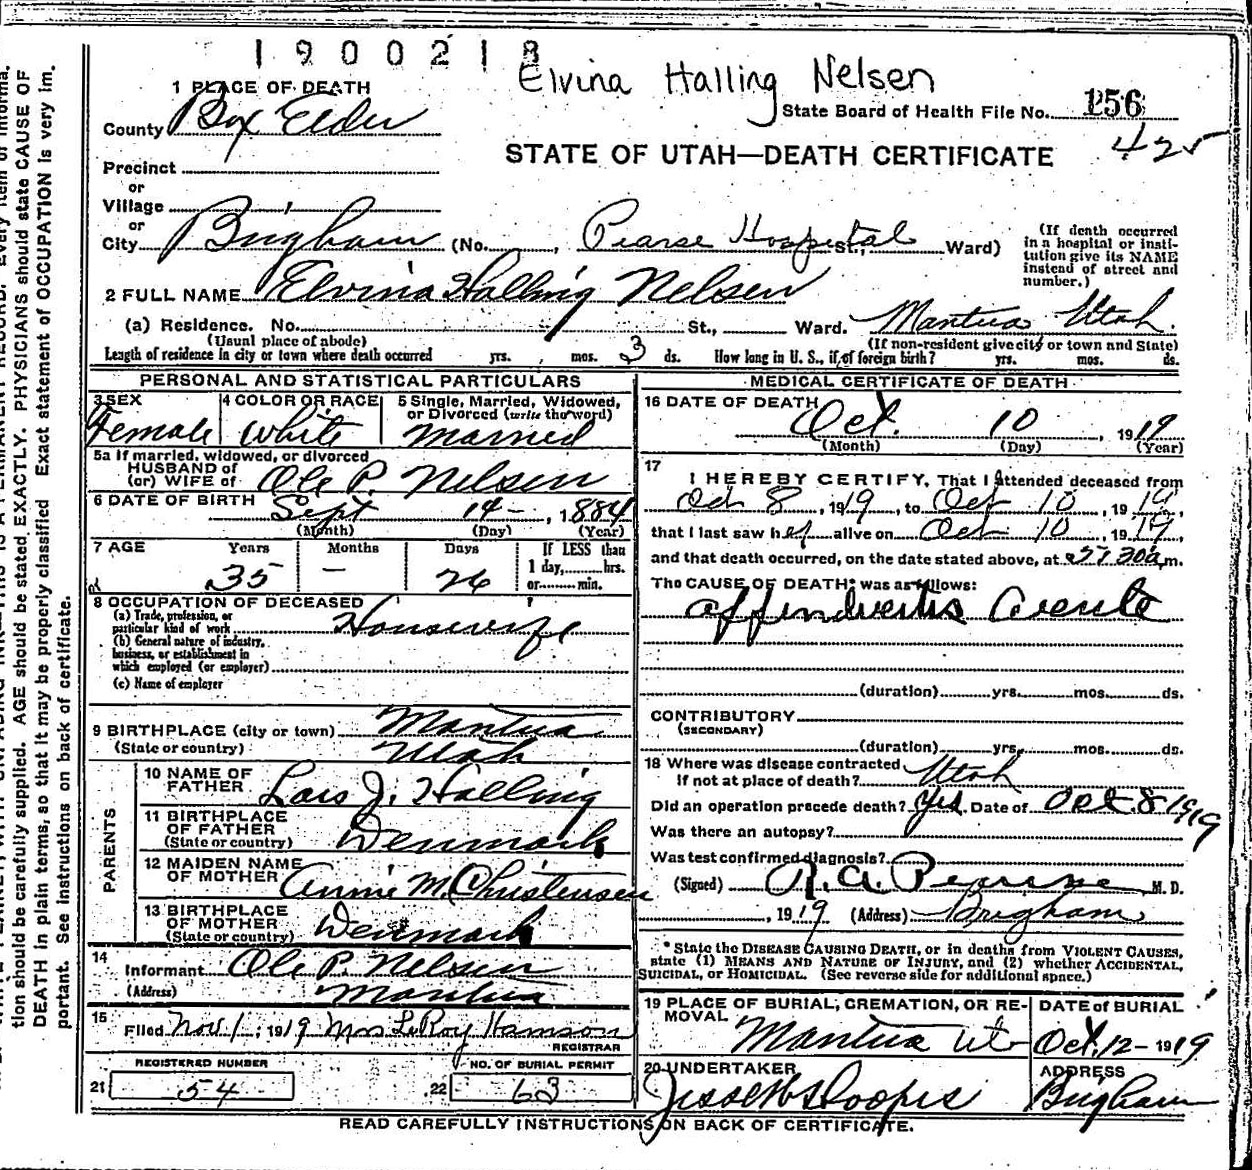 1900218
Elvina Halling Nelsen
1 PLACE OF DEATH
State Board of Health File No. 156
County Box Elder
425
STATE OF UTAH—DEATH CERTIFICATE
Precinct
or
Village
or
City Brigham (No. , Pearse Hospital St., Ward)
(If death occurred
in a hospital or insti-
tution give its NAME
instead of street and
number.)
2 FULL NAME Elvina Halling Nelsen
(a) Residence. No. St., Ward. Mantua Utah.
(Usual place of abode) (If non-resident give city or town and State)
Length of residence in city or town where death occurred yrs. mos. 3 ds. How long in U. S., if of foreign birth? yrs. mos. ds.
PERSONAL AND STATISTICAL PARTICULARS
3 SEX
Female
4 COLOR OR RACE
White
5 Single, Married, Widowed,
or Divorced (write the word)
Married
5a If married, widowed, or divorced
HUSBAND of
(or) WIFE of Ole P. Nelsen
6 DATE OF BIRTH Sept 14 - , 1884
(Month) (Day) (Year)
7 AGE Years Months Days If LESS than
1 day, hrs.
or min.
35 — 26
8 OCCUPATION OF DECEASED
(a) Trade, profession, or
particular kind of work Housewife
(b) General nature of industry,
business, or establishment in
which employed (or employer)
(c) Name of employer
9 BIRTHPLACE (city or town) Mantua
(State or country) Utah
PARENTS
10 NAME OF
FATHER Lars J. Halling
11 BIRTHPLACE
OF FATHER
(State or country) Denmark
12 MAIDEN NAME
OF MOTHER Annie M. Christensen
13 BIRTHPLACE
OF MOTHER
(State or country) Denmark
14
Informant Ole P. Nelsen
(Address) Mantua
15
Filed Nov 1, 1919 Mrs LeRoy Hamson
REGISTRAR
REGISTERED NUMBER
21 54
NO. OF BURIAL PERMIT
22 63
MEDICAL CERTIFICATE OF DEATH
16 DATE OF DEATH
Oct. 10 , 1919
(Month) (Day) (Year)
17
I HEREBY CERTIFY, That I attended deceased from
Oct 8 , 1919, to Oct 10 , 1919,
that I last saw her alive on Oct 10 , 1919,
and that death occurred, on the date stated above, at 30a m.
The CAUSE OF DEATH* was as follows:
Appendicitis Acute
(duration) yrs. mos. ds.
CONTRIBUTORY
(SECONDARY)
(duration) yrs. mos. ds.
18 Where was disease contracted
if not at place of death? Utah
Did an operation precede death? Yes Date of Oct 8 1919
Was there an autopsy?
Was test confirmed diagnosis?
(Signed) R. A. Pearse , M. D.
, 1919 (Address) Brigham
* State the DISEASE CAUSING DEATH, or in deaths from VIOLENT CAUSES,
state (1) MEANS AND NATURE OF INJURY, and (2) whether ACCIDENTAL,
SUICIDAL, or HOMICIDAL. (See reverse side for additional space.)
19 PLACE OF BURIAL, CREMATION, OR RE-
MOVAL
Mantua Ut
DATE of BURIAL
Oct. 12 - 1919
20 UNDERTAKER
Hoopes
ADDRESS
Brigham
READ CAREFULLY INSTRUCTIONS ON BACK OF CERTIFICATE.
tion should be carefully supplied. AGE should be stated EXACTLY. PHYSICIANS should state CAUSE OF
DEATH in plain terms, so that it may be properly classified Exact statement of OCCUPATION is very im.
portant. See instructions on back of certificate.